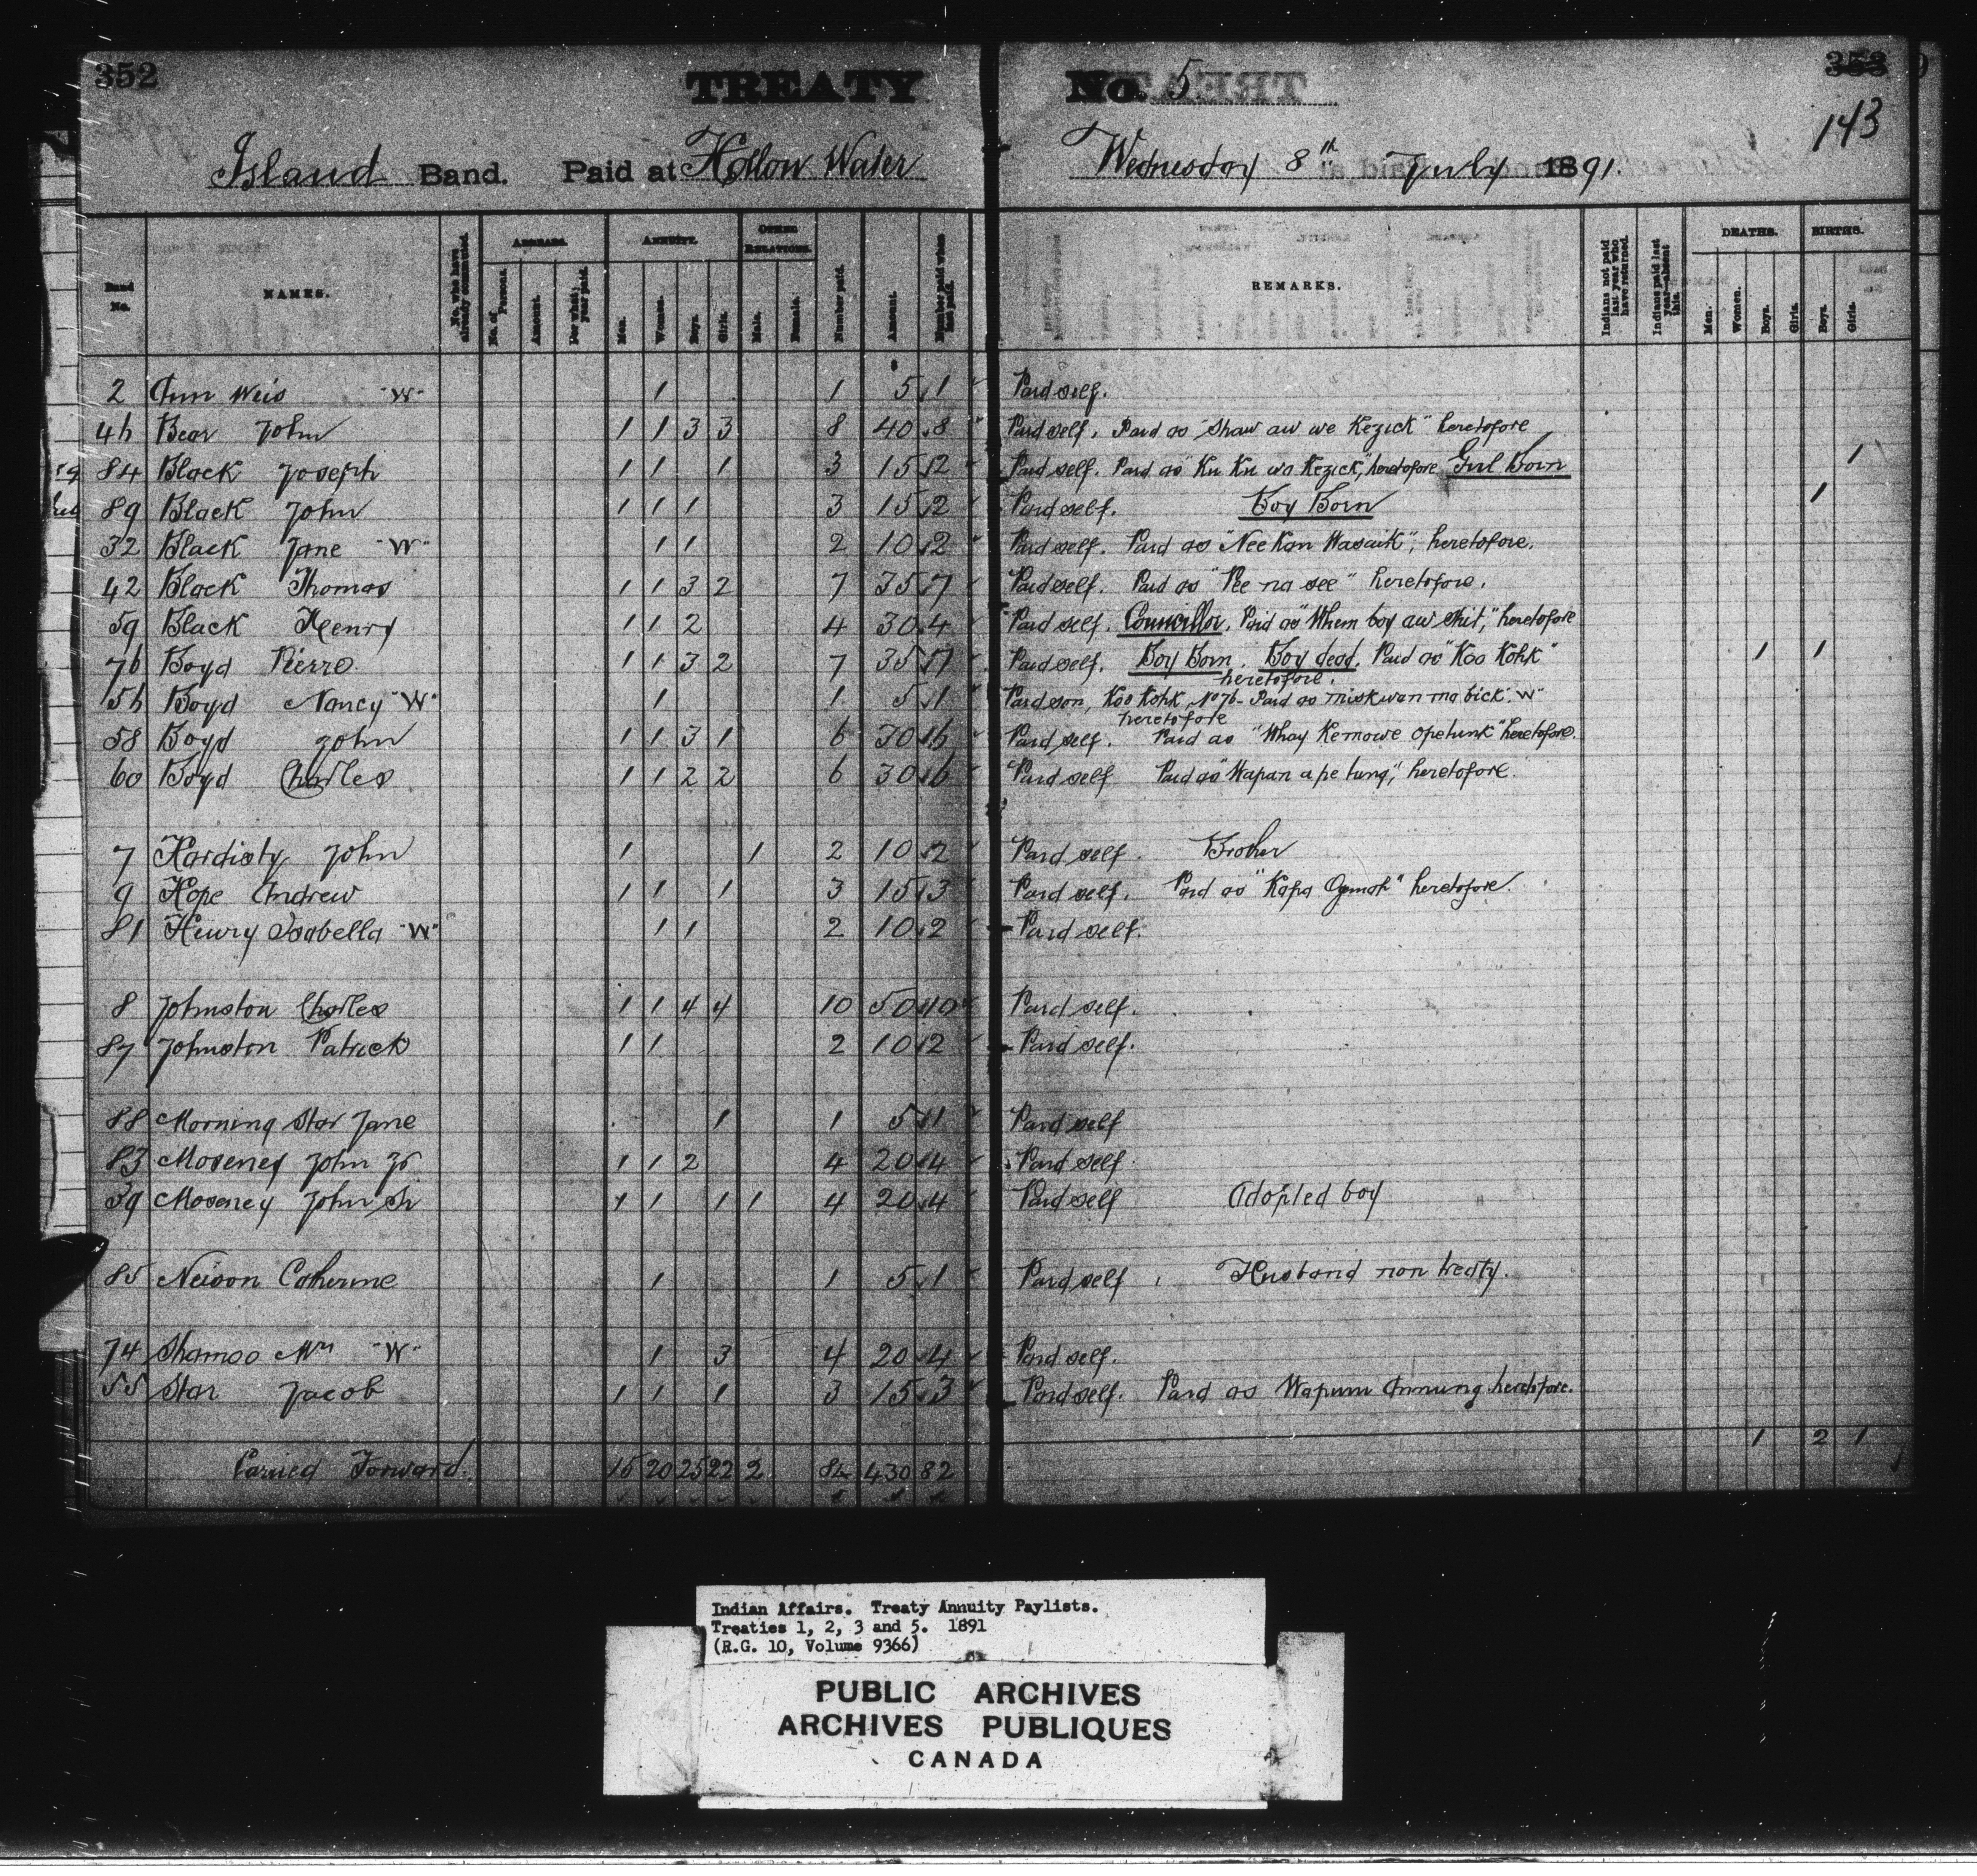 352
TREATY No. 5
353
143
Island Band. Paid at Hollow Water Wednesday 8th July 1891.
Band No. NAMES. No. who have already commuted. ARREARS. No. of Persons. Amount. For what year paid. ANNUITY. Men. Women. Boys. Girls. OTHER RELATIONS. Male. Female. Number paid. Amount. Number paid when last paid. REMARKS. Indians not paid last year who have returned. Indians paid last year—absent this. DEATHS. Men. Women. Boys. Girls. BIRTHS. Boys. Girls.
2 Ann Weis "W" 1 1 5 1 Paid self.
46 Bear John 1 1 3 3 8 40 8 Paid self. Paid as "Shaw au we Kezick" heretofore
84 Black Joseph 1 1 1 3 15 2 Paid self. Paid as "Ku Ku wa Kezick," heretofore Girl Born 1
89 Black John 1 1 1 3 15 2 Paid self. Boy Born 1
32 Black Jane "W" 1 1 2 10 2 Paid self. Paid as "Nee Kan Wasaik", heretofore.
42 Black Thomas 1 1 3 2 7 35 7 Paid self. Paid as "Pee na see" heretofore.
59 Black Henry 1 1 2 4 30 4 Paid self. Councillor. Paid as "Whem boy aw shit," heretofore
76 Boyd Pierre 1 1 3 2 7 35 7 Paid self. Boy Born. Boy dead. Paid as "Koo Kohk" 1 1
heretofore.
56 Boyd Nancy "W" 1 1 5 1 Paid son, Koo Kohk, No 76 - Paid as miskwan ma bick. "W"
heretofore
58 Boyd John 1 1 3 1 6 30 6 Paid self. Paid as "Whay Kemowe opetunk" heretofore.
60 Boyd Charles 1 1 2 2 6 30 6 Paid self Paid as "Wapan a pe tung," heretofore.
7 Hardisty John 1 1 2 10 2 Paid self. Brother
9 Hope Andrew 1 1 1 3 15 3 Paid self. Paid as "Kapa Ogemah" heretofore.
81 Henry Isabella "W" 1 1 2 10 2 Paid self.
8 Johnston Charles 1 1 4 4 10 50 10 Paid self.
87 Johnston Patrick 1 1 2 10 2 Paid self.
88 Morning Star Jane 1 1 5 1 Paid self
83 Moseney John Jr 1 1 2 4 20 4 Paid self
39 Moseney John Sr 1 1 1 1 4 20 4 Paid self Adopted boy
85 Neison Catherine 1 1 5 1 Paid self. Husband non treaty.
74 Shamoo Mrs "W" 1 3 4 20 4 Paid self.
55 Star Jacob 1 1 1 3 15 3 Paid self. Paid as Wapum Annung heretofore.
1 2 1
Carried Forward. 15 20 25 22 2 84 430 82
Indian Affairs. Treaty Annuity Paylists.
Treaties 1, 2, 3 and 5. 1891
(R.G. 10, Volume 9366)
PUBLIC ARCHIVES
ARCHIVES PUBLIQUES
CANADA